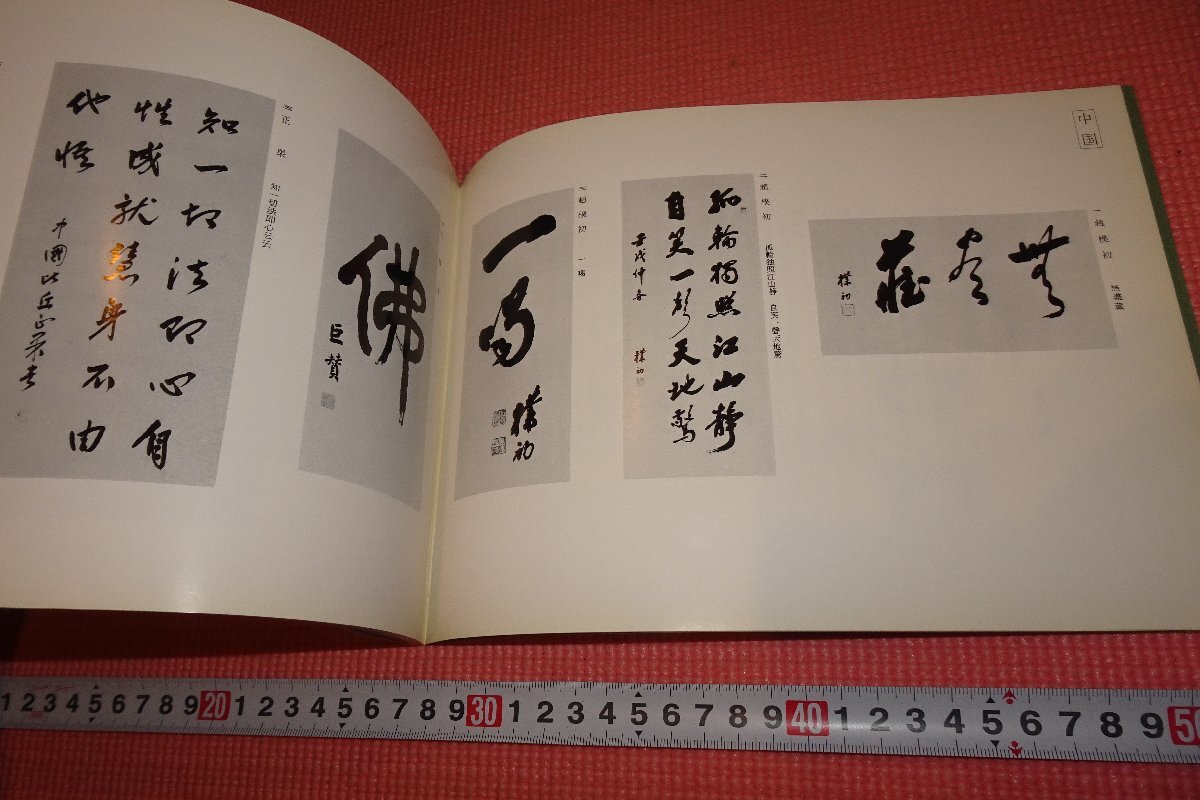 中国
一 趙樸初 無盡蔵
無
尽
蔵
樸初
二 趙樸初 孤輪独照江山静 自笑一声天地驚
孤輪独照江山静
自笑一声天地驚
壬戌仲冬 樸初
趙樸初 一喝
一喝
樸初
佛
巨賛
正果 知一切法即心自云云
知一切法即心自
性成就慧身不由
他悟
中国比丘正果书
1 2 3 4 5 6 7 8 9 20 1 2 3 4 5 6 7 8 9 30 1 2 3 4 5 6 7 8 9 40 1 2 3 4 5 6 7 8 9 50